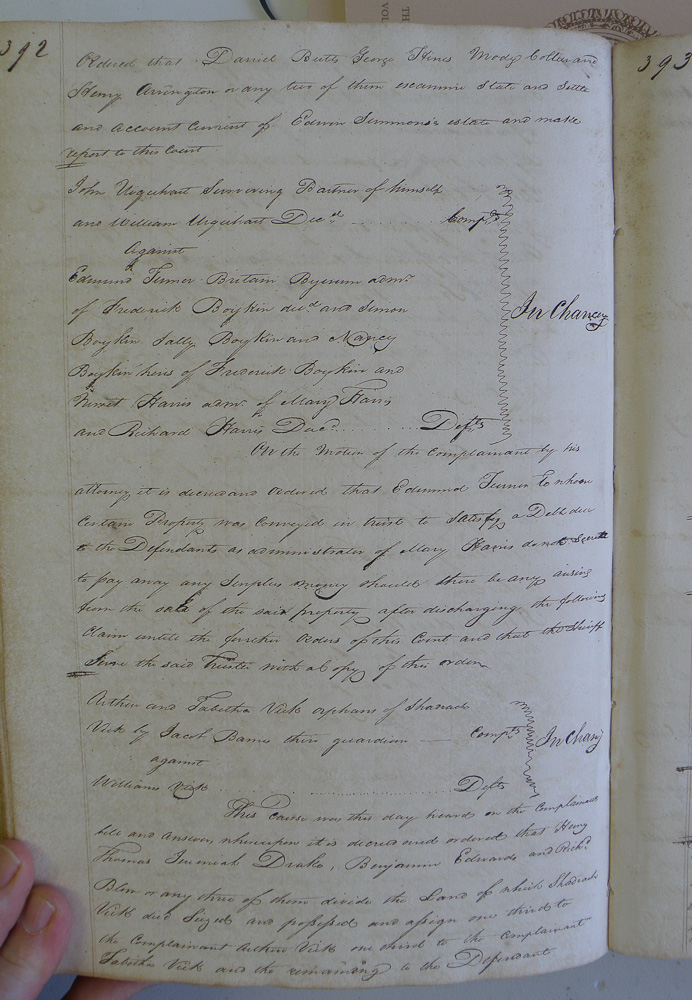 392
Ordered that Daniel Butts George Hines Mody Collier and
Henry Arrington or any two of them examine State and Settle
and account Current of Edwin Simmons's estate and make
report to this Court
John Urquhart Surviving Partner of himself
and William Urquhart Decd Complts
Against
Edmund Turner Britain Bynum admr
of Frederick Boykin decd and Simon
Boykin Sally Boykin and Nancy
Boykin heirs of Frederick Boykin and
Harris admr of Mary Harris
and Richard Harris Decd Defts
In Chancery
On the Motion of the Complainant by his
attorney it is decree and ordered that Edmund Turner to whom
Certain Property was Conveyed in trust to Satisfy a Debt due
to the Defendant as administrator of Mary Harris do not
to pay away any Surplus money should there be any arising
from the sale of the said property after discharging the following
Claim untill the further Orders of this Court and that the Sheriff
Serve the said Trustee with a Copy of this order
Arthur and Tabitha Vick orphans of Shadrach
Vick by Jacob Barnes their guardian Complts
against
Williams Vick Deft
In Chany
This Cause was this day heard on the Complainants
bill and answer whereupon it is decree and ordered that Henry
Thomas Jeremiah Drake, Benjamin Edwards and Richd
Blow or any three of them divide the Land of which Shadrach
Vick died Seized and possessed and assign one third to
the Complainant Arthur Vick one third to the Complainant
Tabitha Vick and the remaining to the Defendant
393